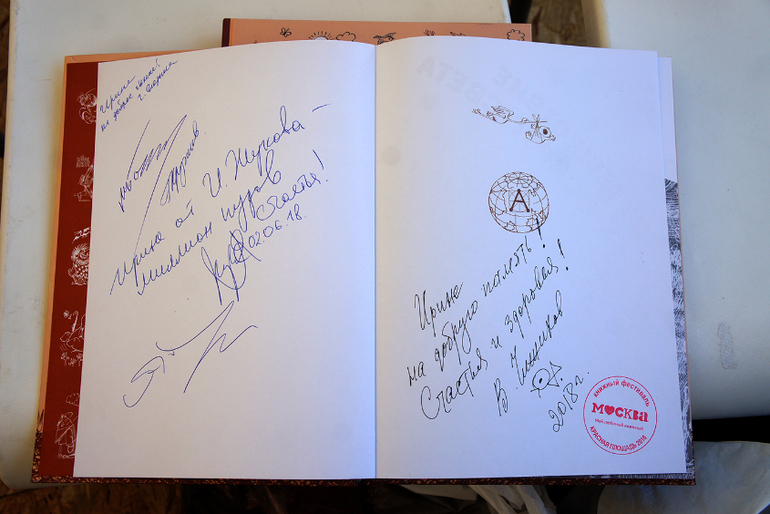 Ирине
на добрую память!
Ирине от И. Жукова –
миллион пуков
счастья!
02.06.18.
А
Ирине
на добрую память!
Счастья и здоровья!
В. Чижиков
2018г.
КНИЖНЫЙ ФЕСТИВАЛЬ
МОСКВА
Мой любимый книжный
КРАСНАЯ ПЛОЩАДЬ 2018